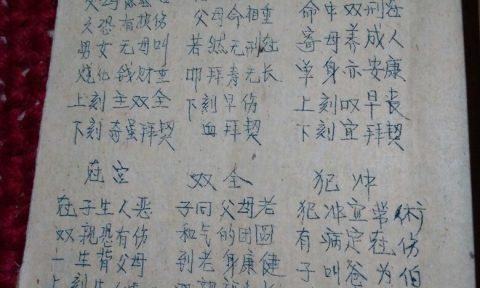 恐有伤
男女无母叫
烧化钱财重
上刻主双全
下刻寄拜契
父母命相重
若然无刑在
叩拜寿元长
下刻早伤
血拜契
命中双刑在
寄母养成人
单身亦安康
上刻叹早丧
下刻宜拜契
在宫
在子生人恶
双亲恐有伤
一生背父母
上刻
双全
子同父母老
和气的团圆
到老身康健
犯冲
犯冲宜带
有病定在伤
子叫爸为伯